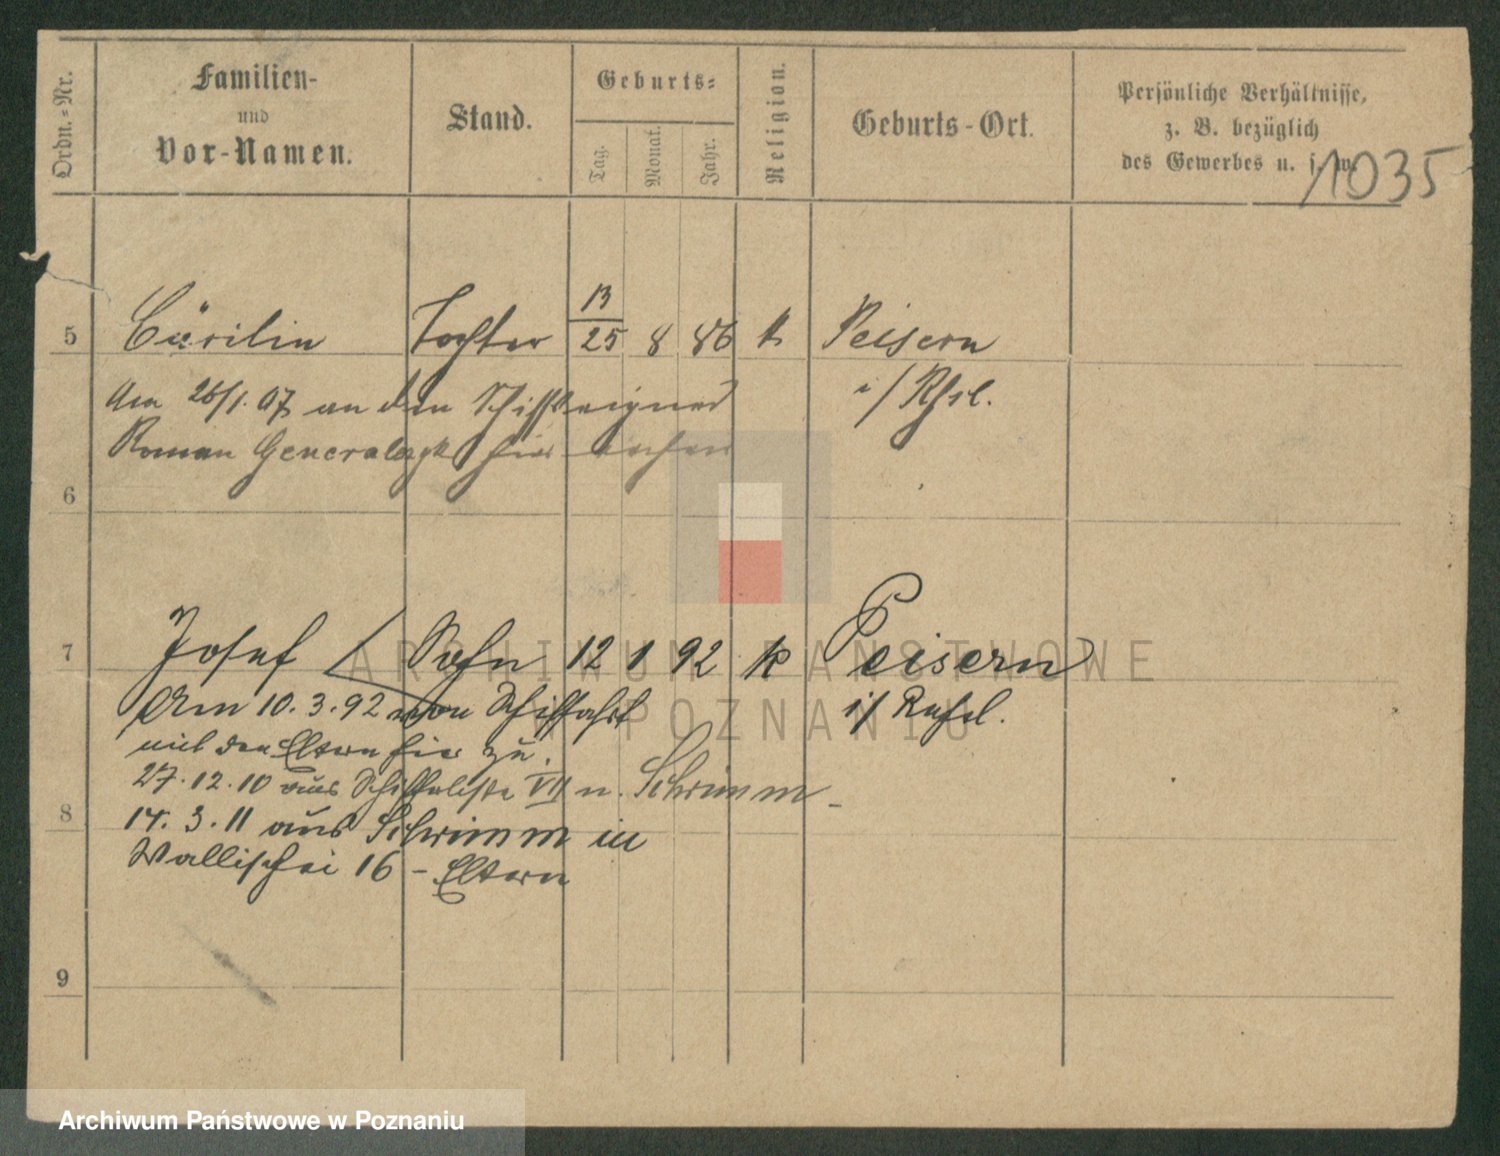 Ordn.=Nr.
Familien-
und
Vor-Namen.
Stand.
Geburts=
Tag.
Monat.
Jahr.
Religion.
Geburts-Ort.
Persönliche Verhältnisse,
z. B. bezüglich
des Gewerbes u. s. w.
1035
5 Cäcilin Tochter 13/25 8 86 k Peisern
i/ Rßl.
Am 26/1. 07 an den Schiffseigner
Roman hier
6
7 Josef Sohn 12 1 92 k Peisern
i/ Rußl.
Am 10. 3. 92 von Schiffahrt
mit den Eltern hier zu.
27. 12. 10 aus Schifferliste VII n. Schrimm -
8
14. 3. 11 aus Schrimm in
Wallischei 16 - Eltern
9
ARCHIWUM PAŃSTWOWE
W POZNANIU
Archiwum Państwowe w Poznaniu